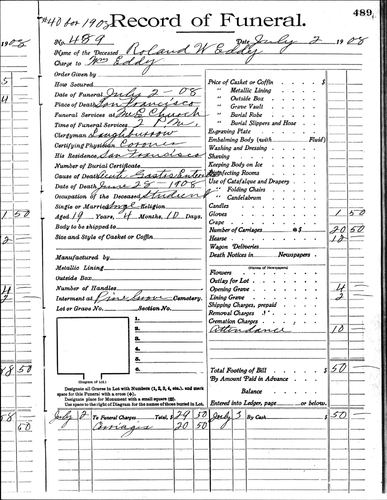 489
#40 for 1908
Record of Funeral.
No. 489 Date July 2 1908
Name of the Deceased Roland W Eddy
Charge to Wm Eddy
Order Given by
How Secured
Date of Funeral July 2 - 08
Place of Death San Francisco
Funeral Services at M E Church
Time of Funeral Services 2 P.M.
Clergyman
Certifying Physician Coroner
His Residence, San Francisco
Number of Burial Certificate
Cause of Death Acute Gastro Enteritis
Date of Death June 28 - 1908
Occupation of the Deceased Student
Single or Married Single Religion
Aged 19 Years, 4 Months, 10 Days
Body to be shipped to
Size and Style of Casket or Coffin
Manufactured by
Metallic Lining
Outside Box
Number of Handles
Interment at Pine Grove Cemetery.
Lot or Grave No. Section No.
1.
2.
3.
4.
5.
6.
(Diagram of Lot.)
Designate all Graves in Lot with Numbers (1, 2, 3, 4, etc.), and mark
space for this Funeral with a cross (+).
Designate place for Monument with a small square (□).
Use space to the right of Diagram for the names of those buried in Lot.
Price of Casket or Coffin $
" Metallic Lining
" Outside Box
" Grave Vault
" Burial Robe
" Burial Slippers and Hose
Engraving Plate
Embalming Body (with Fluid)
Washing and Dressing
Shaving
Keeping Body on Ice
Disinfecting Rooms
Use of Catafalque and Drapery
" Folding Chairs
" Candelabrum
Candles
Gloves 1 50
Crape
Number of Carriages @ $ 20 50
Hearse 12
Wagon Deliveries
Death Notices in Newspapers
(Names of Newspapers)
Flowers
Outlay for Lot
Opening Grave 4
Lining Grave 2
Shipping Charges, prepaid
Removal Charges
Cremation Charges
Attendance 10
Total Footing of Bill $ 50
By Amount Paid in Advance
Balance
Entered into Ledger, page or below.
July 2 To Funeral Charges Total, $ 29 50 July 3 By Cash $ 50
Carriages 20 50